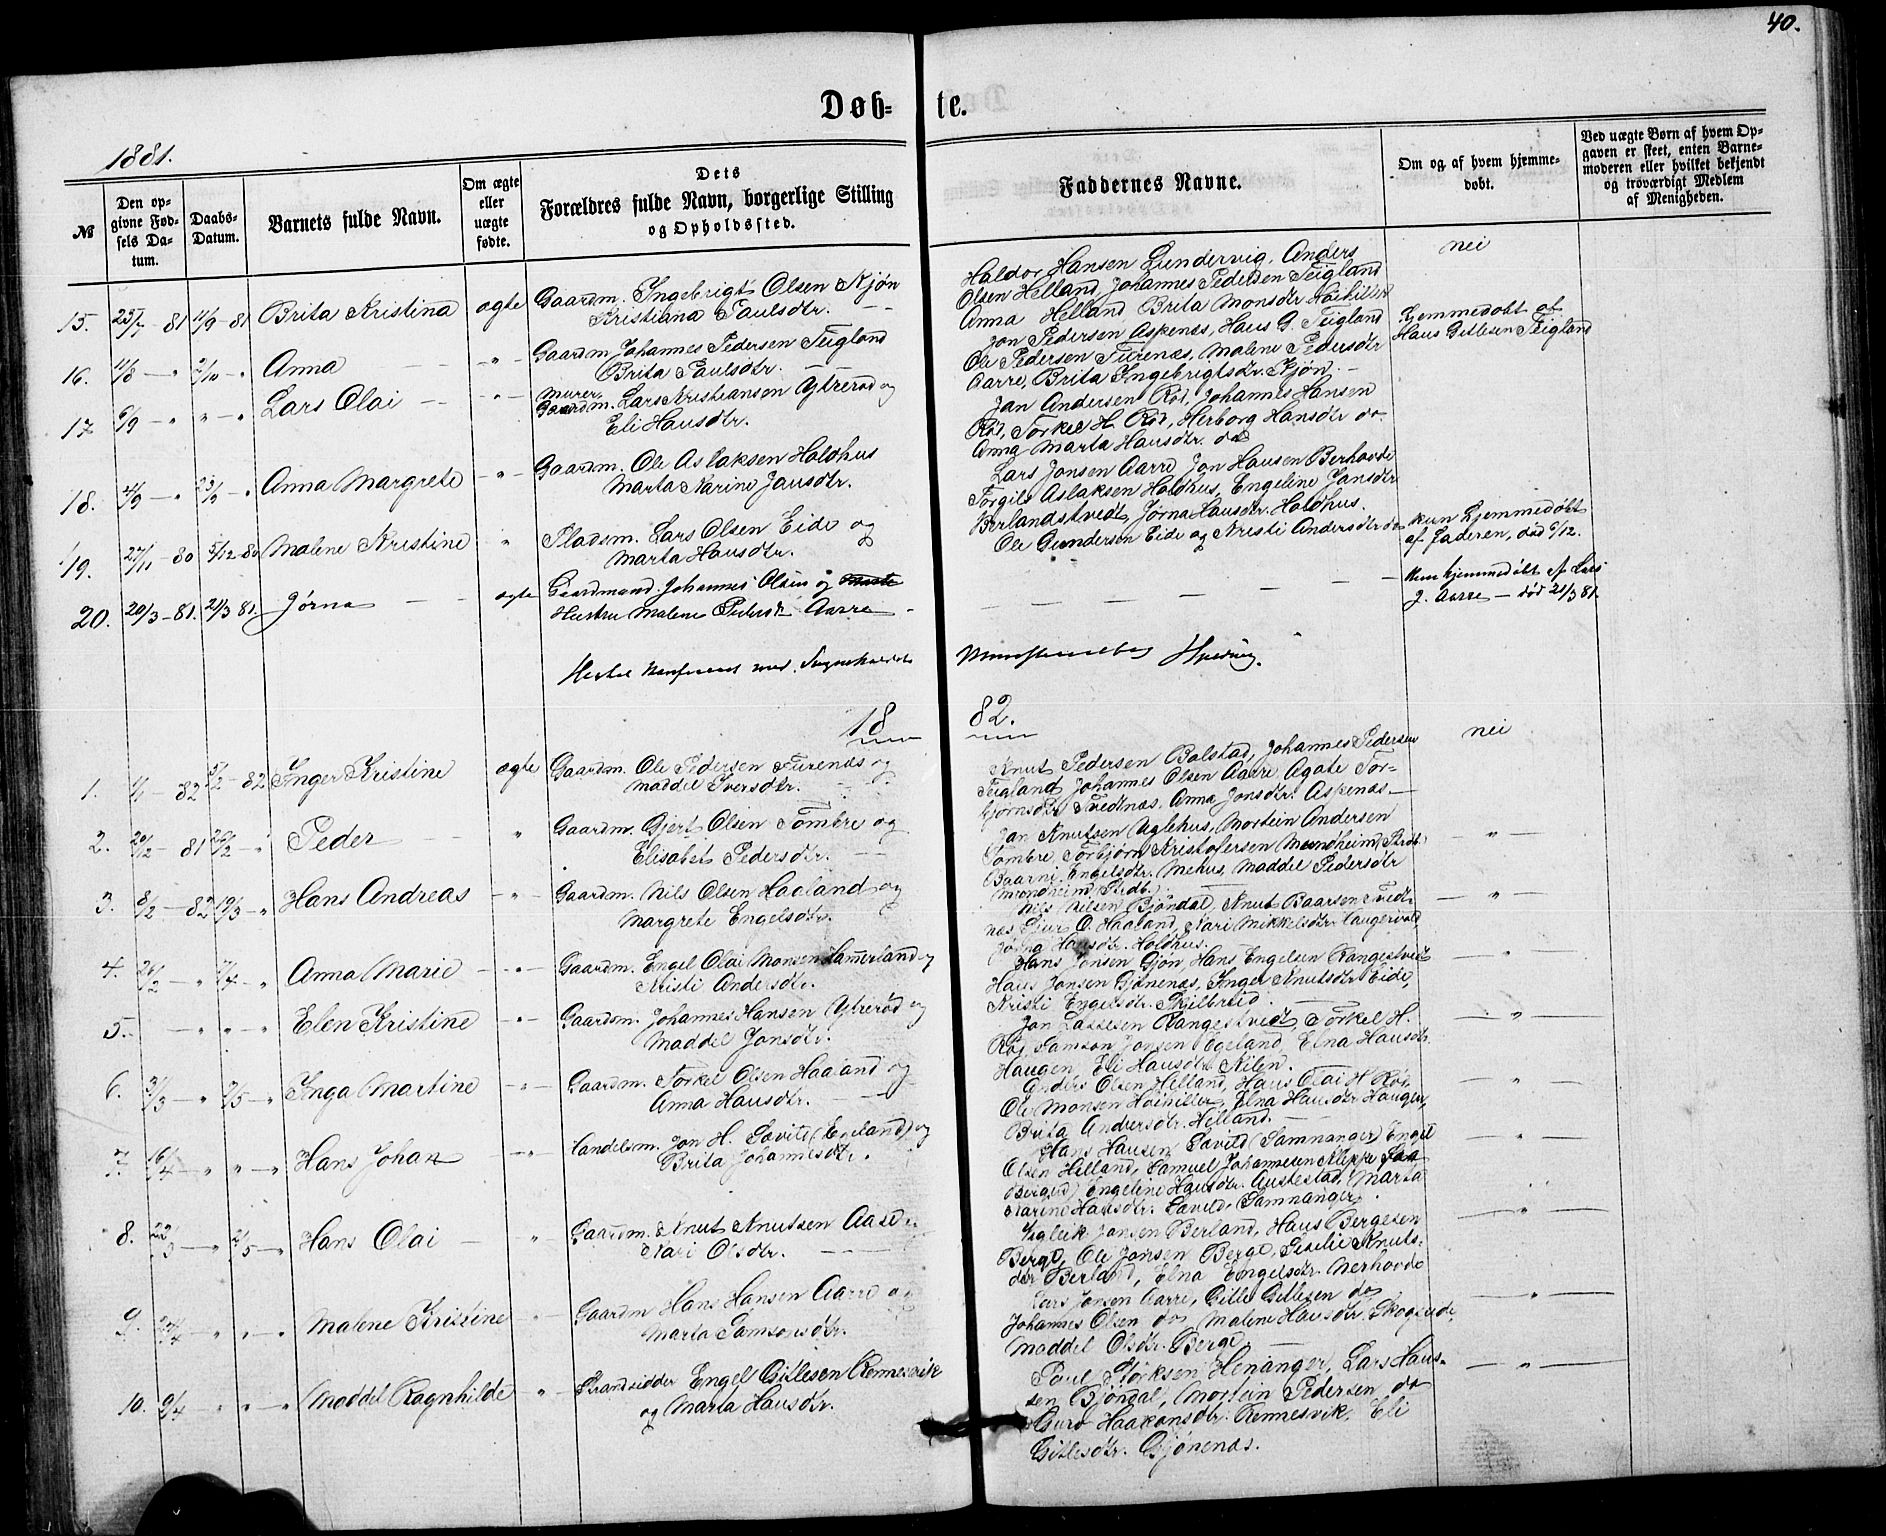 40.
Døb- te.
1881.
№
Den op-
givne Fød-
sels Da-
tum.
Daabs-
Datum.
Barnets fulde Navn.
Om ægte
eller
uægte
fødte.
Dets
Forældres fulde Navn, borgerlige Stilling
og Opholdssted.
Faddernes Navne.
Om og af hvem hjemme-
døbt.
Ved uægte Børn af hvem Op-
gaven er skeet, enten Barne-
moderen eller hvilket bekjendt
og troværdigt Medlem
af Menigheden.
15. 23/7 - 81 11/9 - 81 Brita Kristina ægte Gaardm. Ingebrigt Olsen Kjøn
Kristiana Paulsdtr.
Haldor Hansen Lundervig, Anders
Olsen Helland, Johannes Pedersen Teigland
Anna Helland Brita Monsdtr Høihiller
nei
16. 11/8 - " 2/10 - " Anna - " - Gaardm. Johannes Pedersen Teigland
Brita Paulsdtr.
Jon Pedersen Askenæs, Hans G. Teigland
Ole Pedersen Furenæs, Malene Pedersdtr
Aarre, Brita Ingebrigtsdtr. Kjøn.
hjemmedøbt af
Hans Gitlesen Teigland
17 6/9 - " " - " Lars Olai - " - Murer
Gaardm. Lars Kristiansen Ytrerød og
Eli Hansdtr.
Jan Andersen Rød, Johannes Hansen
Rød, Torkel H. Rød, Herborg Hansdtr do
Anna Marta Hansdtr. do
18. 4/9 - " 23/9 - " Anna Margrete - " - Gaardm. Ole Aslaksen Holdhus
Marta Karine Jansdtr.
Lars Jonsen Aarre Jon Hansen Berhovde
Torgils Aslaksen Holdhus, Engeline Jansdtr
Berlandstvedt, Jørna Hansdtr. Holdhus.
19. 27/11 - 80 5/12 - 80 Malene Kristine " Pladsm. Lars Olsen Eide og
Marta Hansdtr.
Ole Gundersen Eide og Kristi Andersdtr do
kun hjemmedøbt
af Faderen, død 6/12.
20. 20/3 - 81. 21/3 81. Jørna ægte Gaardmand Johannes Olsen og
Hustru Malene Pedersdtr Aarre
Kun hjemmedøbt af Lars
J. Aarre - død 21/3 81.
18 82.
1. 1/1 - 82 5/2 - 82 Inger Kristine ægte Gaardm. Ole Pedersen Furenæs og
Maddel Iversdtr.
Knut Pedersen Bolstad, Johannes Pedersen
Teigland Johannes Olsen Aarre, Agate Tor-
bjørnsdtr Tvedtnæs, Anna Jonsdtr. Askenæs.
nei
2. 20/12 - 81 26/2 - " Peder " Gaardm. Gjert Olsen Tombre og
Elisabet Pedersdtr.
Jan Knutsen Uglehus, Mortein Andersen
Tombre, Torbjørn Kristofersen Mundheim (Strdb.)
Baarni Engelsdtr. Mehus, Maddel Pedersdtr
Mundheim (Strdb.)
- " -
3. 8/2 - 82 19/3 - " Hans Andreas - " - Gaardm. Nils Olsen Haaland og
Margrete Engelsdtr.
Nils Nilsen Bjøndal, Knut Baarsen Tvedt-
næs Sjur O. Haaland, Kari Mikkelsdtr. Haugervold,
Jørna Hansdtr. Holdhus.
- " -
4. 26/2 - " 7/4 - " Anna Marie - " - Gaardm. Engel Olai Monsen Hammerland og
Kristi Andersdtr.
Hans Jonsen Gjøn, Hans Engelsen Rangestvedt
Hans Jonsen Gjønenæs, Inger Knutsdtr Eide,
Kristi Engelsdtr. Skilbreid.
- " -
5. - " " - " Elen Kristine - " - Gaardm. Johannes Hansen Ytrerød og
Maddel Jonsdtr.
Jon Lassesen Rangestvedt, Torkel H.
Rød, Samson Jonsen Egeland, Elna Hansdtr.
Haugen, Eli Hansdtr. Kilen.
- " -
6. 3/3 - " 2/5 - " Inga Martine - " - Gaardm. Torkel Olsen Haaland og
Anna Hansdtr.
Anders Olsen Helland, Hans Olai H. Rød,
Ole Monsen Høihiller, Elna Hansdtr. Haugen,
Brita Andersdtr. Helland.
- " -
7. 16/4 - " " - " Hans Johan - " - Handelsm. Jon H. Tveit (Egeland) og
Brita Johannesdtr.
Olsen Helland, Samuel Johannesen Kleppe
Engeline Hansdtr. Austestad, Marta
- " -
8. 22/3 - " 2/5 - " Hans Olai " Gaardm. Knut Knutsen Aase og
Kari Olsdtr.
Isleik Jansen Berland, Hans Bergesen
Berge, Ole Jansen Berge, Siselie Knuts-
dtr Berland, Elna Engelsdtr. Nerhovde
- " -
9. - " " - " Malene Kristine " Gaardm Hans Hansen Aarre og
Marta Samsonsdtr.
Lars Jansen Aarre, Gitle Gitlesen do
Johannes Olsen do, Malene Hansdtr. Skogseide,
Maddel Olsdtr. Berge.
- " -
10. 9/4 " " - " Maddel Ragnhilde " Strandsidder Engel Gitlesen Rennesvik
og Marta Hansdtr.
Paul Størksen Henanger, Lars Han-
sen Bjøndal, Mortein Pedersen do
Guro Haakonsdtr. Rennesvik, Eli
Gitlesdtr. Gjønenæs.
- " -